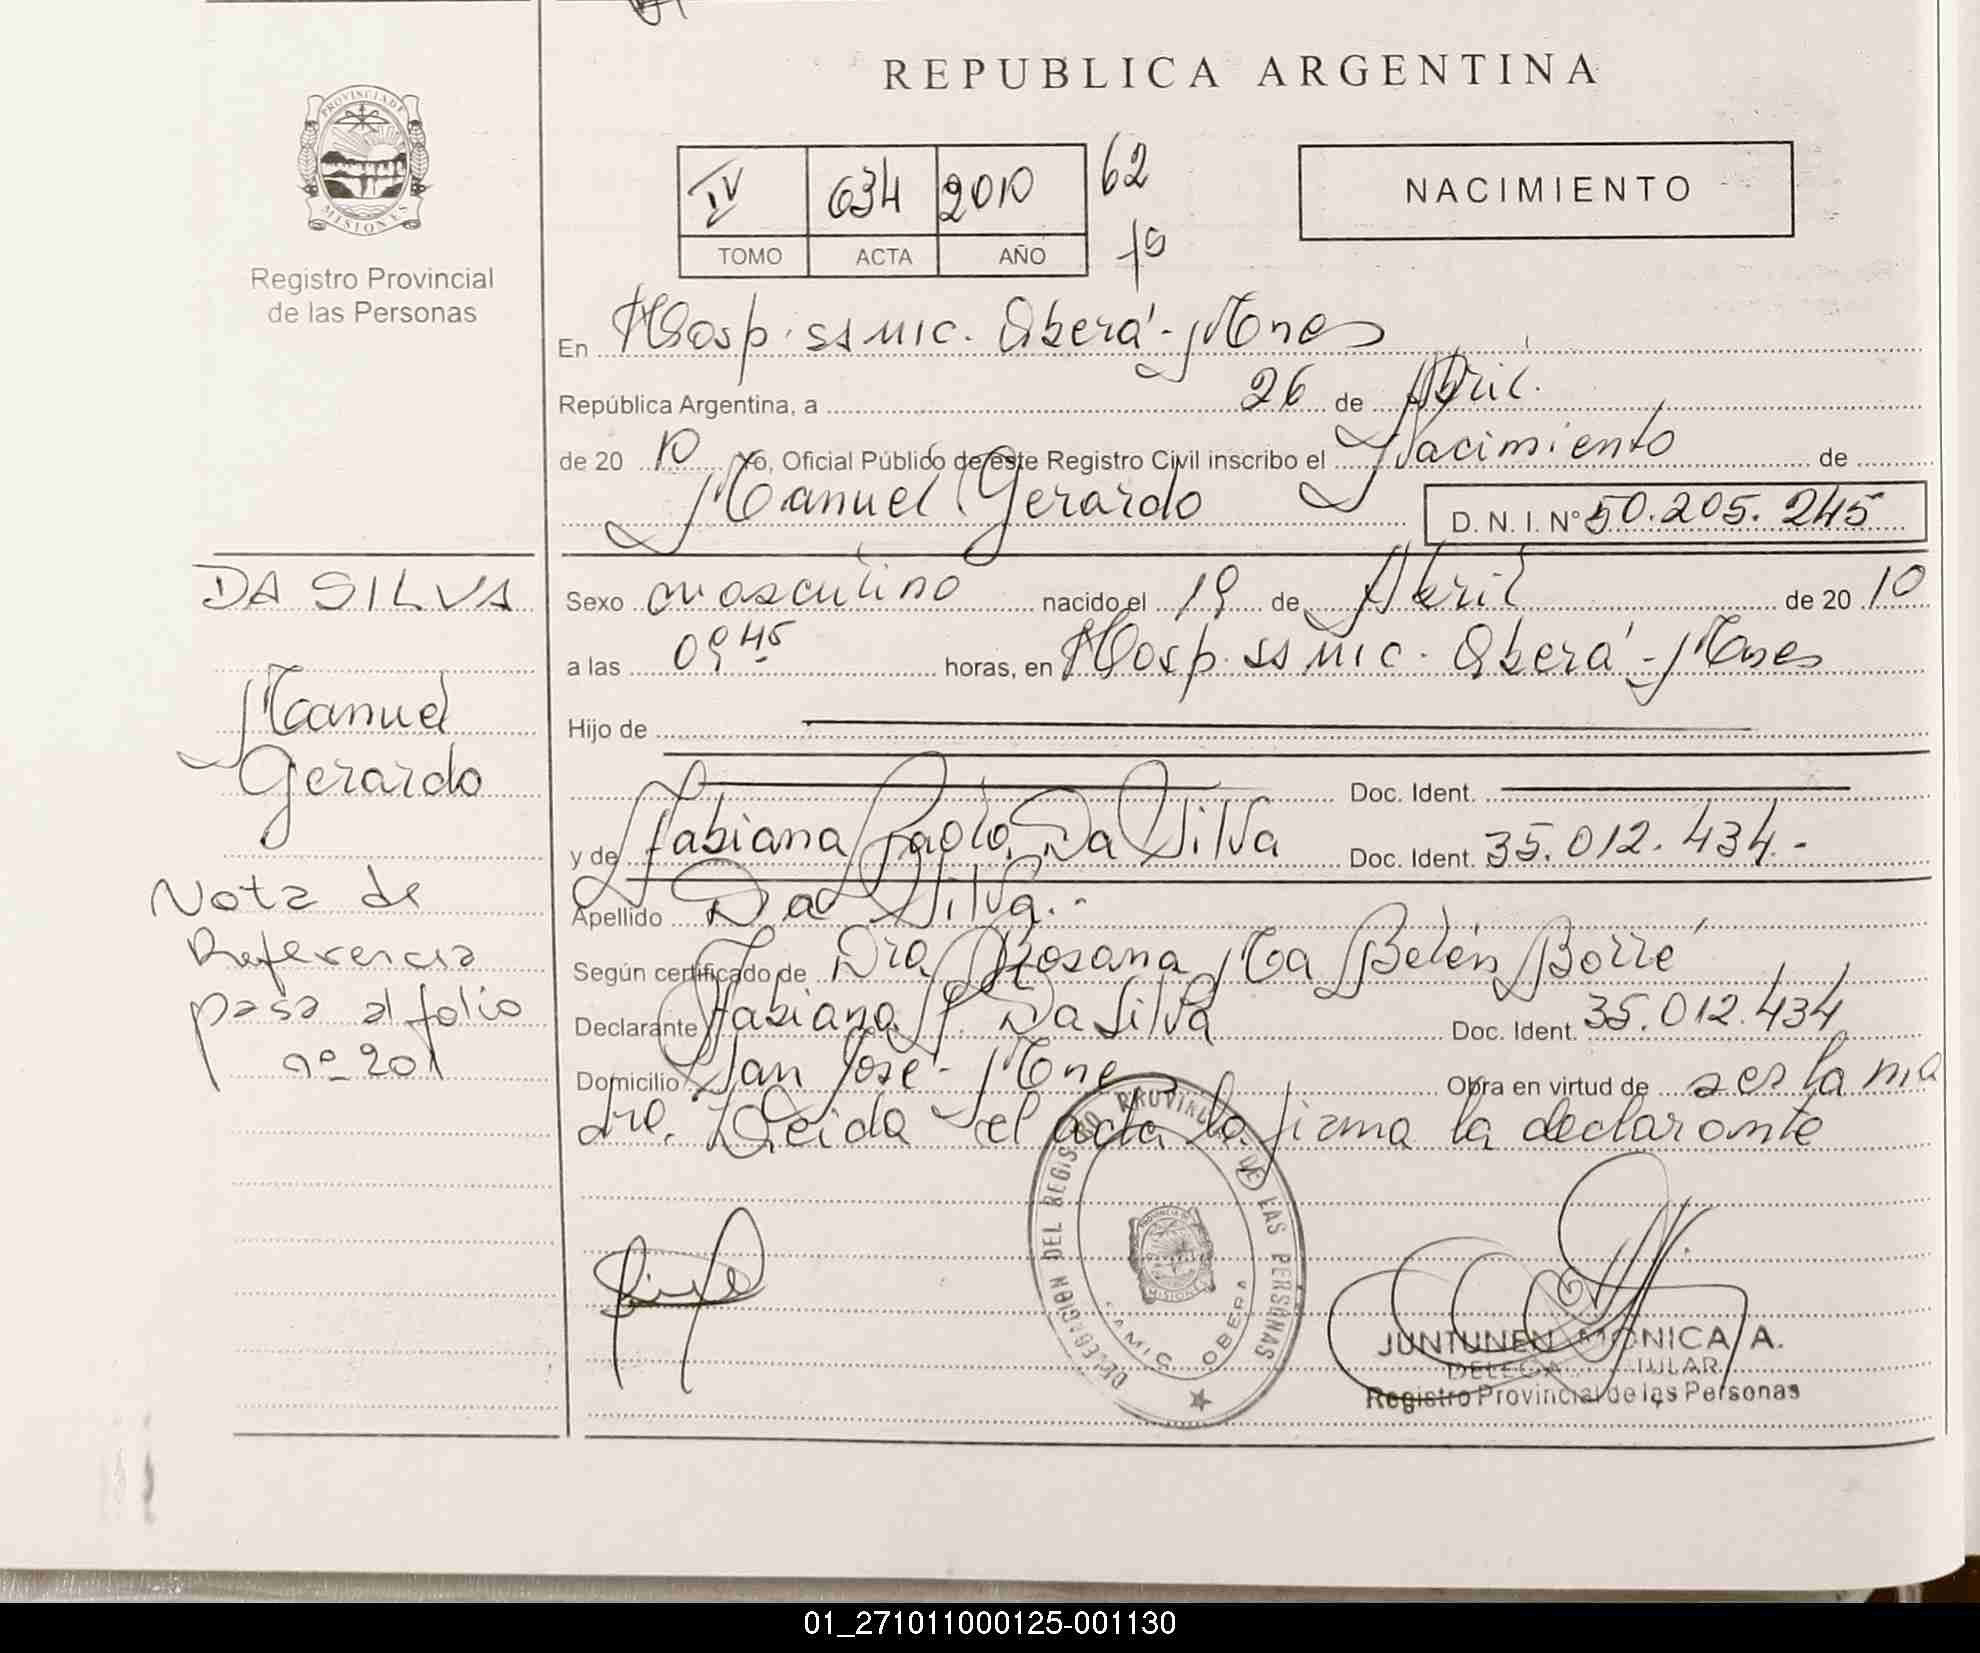 REPUBLICA ARGENTINA
PROVINCIA DE
MISIONES
Registro Provincial
de las Personas
IV 634 2010 62
TOMO ACTA AÑO fº
NACIMIENTO
En Hosp. SSMIC. Oberá - Mnes
República Argentina, a 26 de Abril.
de 20 10 Yo, Oficial Público de este Registro Civil inscribo el Nacimiento de
Manuel Gerardo D. N. I. Nº 50.205.245
DA SILVA
Manuel
Gerardo
Nota de
Referencia
pasa al folio
nº 201
Sexo masculino nacido el 19 de Abril de 20 10
a las 09 45 horas, en Hosp. SSMIC. Oberá - Mnes
Hijo de
Doc. Ident.
y de Fabiana Paola Da Silva Doc. Ident. 35.012.434.-
Apellido Da Silva.-
Según certificado de Dra. Rosana Ma Belén Borré
Declarante Fabiana P. Da Silva Doc. Ident. 35.012.434
Domicilio San José - Mnes Obra en virtud de ser la ma
dre. Leida el acta la firma la declarante
DELEGACIÓN DEL REGISTRO PROVINCIAL DE LAS PERSONAS
SAMIC OBERA
MISIONES
JUNTUNEN MONICA A.
Registro Provincial de las Personas
01_271011000125-001130